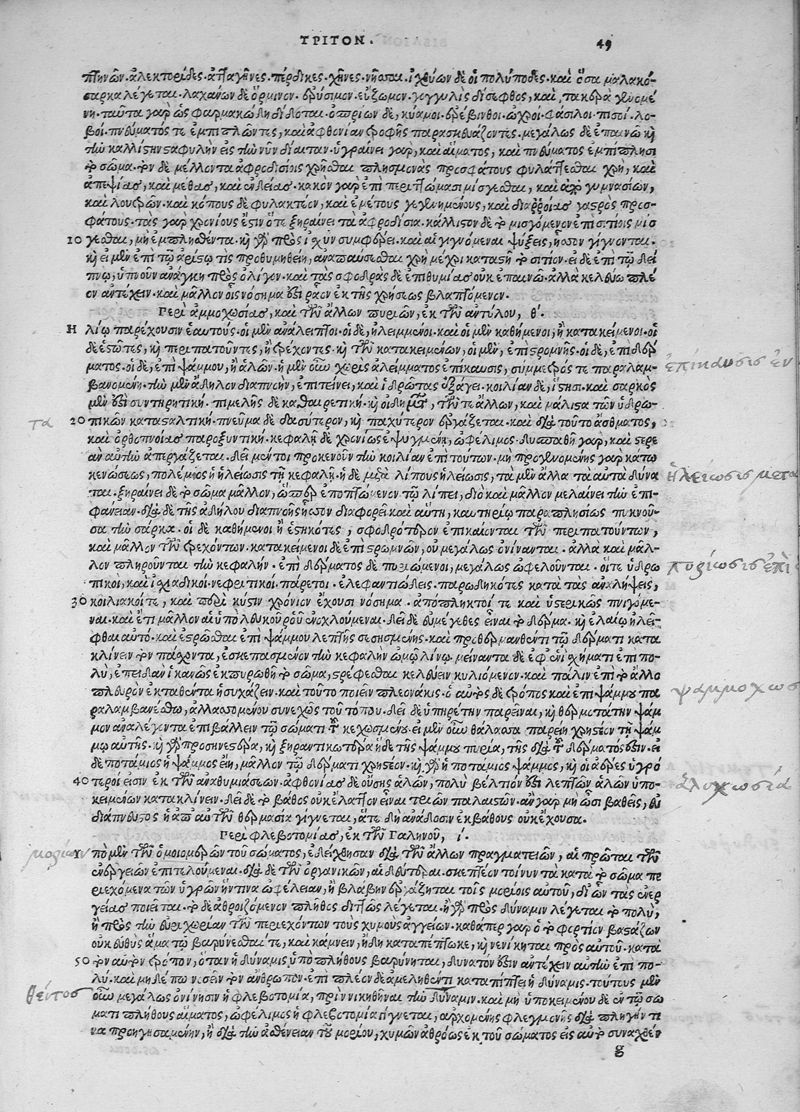 ΤΡΙΤΟΝ. 49
πτηνῶν. ἀλεκτορίδες. ἀτταγῆνες. πέρδικες. χῆνες. νῆσσαι. ἰχθύων δὲ οἱ πολύποδες. καὶ ὅσα μαλακό-
σαρκα λέγεται. λαχάνων δὲ ὅρμινον. ἐρύσιμον. εὔζωμον. γογγυλὶς δίσεφθος, καὶ τακερὰ γινομέ-
νη. ταῦτα γὰρ ὡς φαρμακώδη δίδοται. ὀσπρίων δὲ, κύαμοι. ἐρέβινθοι. ὦχροι. φασίλοι. πισοί. λο-
βοί. πνεύματός τε ἐμπιπλῶντες, καὶ ἀφθονίαν τροφῆς παρασκευάζοντες. μεγάλως δὲ ἐπαινῶ καὶ
τὴν καλλίστην σταφυλὴν εἰς τὴν νῦν δίαιταν. ὑγραίνει γὰρ, καὶ αἵματος, καὶ πνεύματος ἐμπίπλησι
τὸ σῶμα. τὸν δὲ μέλλοντα ἀφροδισίοις χρῆσθαι πλησμονὰς προσφάτους φυλάττεσθαι χρὴ, καὶ
ἀπεψίας, καὶ μέθας, καὶ ἐνδείας. κακὸν γὰρ ἐπὶ περιττώμασι μίσγεσθαι, καὶ πρὸ γυμνασίων,
καὶ λουτρῶν. καὶ κόπους δὲ φυλακτέον, καὶ ἐμέτους γεγενημένους, καὶ διαρροίας γαστρὸς προσ-
φάτους. τὰς γὰρ χρονίους ἔστιν ὅτε ξηραίνει τὰ ἀφροδίσια. κάλλιστον δὲ τὸ μισγόμενον ἐπὶ σιτίοις μίσ
10 γεσθαι, μὴ ἐμπλησθέντα. καὶ γὰρ πρὸς ἰσχὺν συμφέρει. καὶ αἱ γιγνόμεναι ψύξεις, ἧσσον γίγνονται.
καὶ εἰ μὲν ἐπὶ τῷ ἀρίστῳ τις προθυμηθείη, ἀναπαύεσθαι χρὴ μέχρι κατασπῇ τὸ σιτίον. εἰ δὲ ἐπὶ τῷ δεί
πνῳ, ὑπνοῦν ἀνάγκη πρὸς ὀλίγον. καὶ τὰς σφοδρὰς δὲ ἐπιθυμίας οὐκ ἐπαινῶ. ἀλλὰ κελεύω πλέ
ον ἀντέχειν. καὶ μᾶλλον οἷς νόσημα ἐστὶ ῥᾶον ἐκ τῆς χρήσεως βλαπτόμενον.
Περὶ ἀμμοχωσίας, καὶ τῶν ἄλλων πυριῶν, ἐκ τῶν ἀντύλου, θ'.
Η λίῳ παρέχουσιν ἑαυτοὺς. οἱ μὲν ἀνάλειπτοι. οἱ δὲ, ἠλειμμένοι. καὶ οἱ μὲν καθήμενοι, ἢ κατακείμενοι. οἱ
δὲ ἑστῶτες, καὶ περιπατοῦντες, ἢ τρέχοντες. καὶ τῶν κατακειμένων, οἱ μὲν, ἐπὶ στρωμνῆς. οἱ δὲ, ἐπὶ δέρμ
ματος. οἱ δὲ, ἐπὶ ψάμμου, ἢ ἁλῶν. ἡ μὲν οὖν χωρὶς ἀλείμματος ἐπίκαυσις, συμμέτρως τε παραλαμ-
βανομένη. τὴν μὲν ἄδηλον διαπνοὴν, ἐπιτείνει, καὶ ἱδρῶτας ἐξάγει. κοιλίαν δὲ, ἵστησι. καὶ σαρκὸς
μὲν ἐστὶ συντηρητικὴ. πιμελῆς δὲ καθαιρετικὴ. καὶ οἰδημάτων, τῶν τε ἄλλων, καὶ μάλιστα τῶν ὑδρω-
20 πικῶν κατασταλτικὴ. πνεῦμα δὲ δασύτερον, καὶ παχύτερον ἐργάζεται. καὶ διὰ τοῦτο ἄσθματος,
καὶ ὀρθοπνοίας παροξυντικὴ. κεφαλῇ δὲ χρονίως ἐψυγμένῃ, ὠφέλιμος. εὐσταθῆ γὰρ, καὶ στερε
ὰν αὐτὴν ἀπεργάζεται. δεῖ μέντοι προκενοῦν τὴν κοιλίαν ἐπὶ τούτων. μὴ προγινομένης γὰρ κάτω
κενώσεως, πολέμιος ἡ ἡλείωσις τῇ κεφαλῇ. ἡ δὲ μετὰ λίπους ἡλείωσις, τὰ μὲν ἄλλα ταὐτὰ δύνα
ται. ξηραίνει δὲ τὸ σῶμα μᾶλλον, ὥσπερ ἐποπτώμενον τῷ λίπει, διὸ καὶ μᾶλλον μελαίνει τὴν ἐπι-
φάνειαν. διὰ δὲ τῆς ἀδήλου διαπνοῆς ἧσσον διαφορεῖ καὶ αὕτη, καυτηρίῳ παραπλησίως πυκνοῦ-
σα τὴν σάρκα. οἱ δὲ καθήμενοι ἢ ἑστηκότες, σφοδρότερον ἐπικαίονται τῶν περιπατούντων,
καὶ μᾶλλον τῶν τρεχόντων. κατακείμενοι δὲ ἐπὶ στρωμνῶν, οὐ μεγάλως ὀνίνανται. ἀλλὰ καὶ μᾶλ-
λον πληροῦνται τὴν κεφαλήν. ἐπὶ δέρματος δὲ πυριώμενοι, μεγάλως ὠφελοῦνται. οἵ τε ὑδρω
πικοὶ, καὶ ἰσχιαδικοὶ. νεφριτικοὶ. πάρετοι. ἐλεφαντιῶδεις. παρῳδηκότες κατὰ τὰς ἀναλήψεις,
30 κοιλιακοί τε, καὶ περὶ κύστιν χρόνιον ἔχουσι νόσημα. ἀπόπληκτοί τε καὶ ὑστερικῶς πνιγόμε-
ναι. καὶ ἔτι μᾶλλον αἱ ὑπὸ λευκοῦ ῥοῦ ἐνοχλούμεναι. δεῖ δὲ εὐμέγεθες εἶναι τὸ δέρμα. καὶ ἐλαίῳ ἠλεῖ-
φθαι αὐτὸ. καὶ ἐστρῶσθαι ἐπὶ ψάμμου λεπτῆς σεσησμένης. καὶ προθερμανθέντι τῷ δέρματι κατα
κλίνειν τὸν πάσχοντα, ἐσκεπασμένον τὴν κεφαλὴν ὠμῷ λίνῳ. μείναντα δὲ ἐφ' ἑνὶ σχήματι ἐπὶ πο-
λὺ, ἐπειδὰν ἱκανῶς ἐκπυρωθῇ τὸ σῶμα, στρέφεσθαι κελεύειν κυλιόμενον. καὶ πάλιν ἐπὶ τὸ ἄλλο
πλευρὸν ἐκταθέντα ἡσυχάζειν. καὶ τοῦτο ποιεῖν πλεονάκις. ὁ αὐτὸς δὲ τρόπος καὶ ἐπὶ ψάμμου πα
ραλαμβανέσθω, ἀλλασσομένου συνεχῶς τοῦ τόπου. δεῖ δὲ ὑπηρέτην παρεῖναι, καὶ θερμοτάτην ψάμ
μον ἀναλέγοντα ἐπιβάλλειν τῷ σώματι τοῦ κεχωσμένου. εἰ μὲν οὖν θάλασσα παρείη χρηστέον τῇ ψάμ-
μῳ αὐτῆς. καὶ γὰρ προσηνεστέρα, καὶ ξηραντικωτέρα ἥδε τῆς ψάμμου πυρία, τῆς διὰ τοῦ δέρματος ἐστιν. εἰ
δὲ ποτάμιος ἡ ψάμμος εἴη, μᾶλλον τῷ δέρματι χρηστέον. καὶ γὰρ ἡ ποτάμιος ψάμμος, καὶ οἱ ἀέρες ὑγρό
40 τεροί εἰσιν ἐκ τῶν ἀναθυμιάσεων. ἀφθονίας δὲ οὔσης ἁλῶν, πολὺ βέλτιον ἐστὶ λεπτῶν ἁλῶν ὑπο-
κειμένων κατακλίνειν. δεῖ δὲ τὸ βάθος οὐκ ἔλαττον εἶναι τριῶν παλαιστῶν. ἂν γὰρ μὴ ὦσι βαθεῖς, εὐ
διάπνευστος ἡ ἀπ' αὐτῶν θερμασία γίγνεται, ἅτε δὴ ἀνάδοσιν ἐκ βάθους οὐκ ἔχουσα.
Περὶ φλεβοτομίας, ἐκ τῶν Γαληνοῦ, ι'.
Υπὸ μὲν τῶν ὁμοιομερῶν τοῦ σώματος, ἐδείχθησαν διὰ τῶν ἄλλων πραγματειῶν, αἱ πρῶται τῶν
ἐνεργειῶν ἐπιτελούμεναι. διὰ δὲ τῶν ὀργανικῶν, αἱ δεύτεραι. σκεπτέον τοίνυν τὰ κατὰ τὸ σῶμα πε
ριεχόμενα τῶν ὑγρῶν ἥντινα ὠφέλειαν, ἢ βλάβην ἐργάζηται τοῖς μορίοις αὐτοῦ, δι' ὧν τὰς ἐνερ-
γείας ποιεῖται. τὸ δὲ ἀθροιζόμενον πλῆθος διττῶς λέγεται. ἢ γὰρ πρὸς δύναμιν λέγεται τὸ πολύ,
ἢ πρὸς τὴν εὐρυχωρίαν τῶν περιεχόντων τοὺς χυμοὺς ἀγγείων. καθάπερ γὰρ ὁ φορτίον βαστάζων
οὐκ εὐθὺς ἅμα τῷ βαρύνεσθαί τε, καὶ κάμνειν, ἤδη καταπέπτωκε, καὶ νενίκηται πρὸς αὐτοῦ. κατὰ
50 τὸν αὐτὸν τρόπον, ὅταν ἡ δύναμις ὑπὸ πλήθους βαρύνηται, δυνατόν ἐστιν ἀντέχειν αὐτὴν ἐπὶ πο-
λύ. καὶ μηδέπω νοσεῖν τὸν ἄνθρωπον. ἐπὶ πλέον δὲ ἀμεληθέντι καταπίπτει ἡ δύναμις. τούτους μὲν
οὖν μεγάλως ὀνίνησιν ἡ φλεβοτομία, πρὶν νικηθῆναι τὴν δύναμιν. καὶ μὴ ὑποκειμένου δὲ ἐν τῷ σώ
ματι πλήθους αἵματος, ὠφέλιμος ἡ φλεβοτομία γίγνεται, ἀρχομένης φλεγμονῆς διὰ πληγήν τι
να προηγησαμένην, ἢ διὰ τὴν ἀσθένειαν τοῦ μορίου, χυμῶν ἀθρόως ἐκ τοῦ σώματος εἰς αὐτὸ συναχθέν
g
ἐπίκαυσις ἐν
τα
Ἡλείωσις μετα
πυρίωσις ἐπὶ
ψαμμοχωσ
ἁλοχωσία
μορίων
θέντος